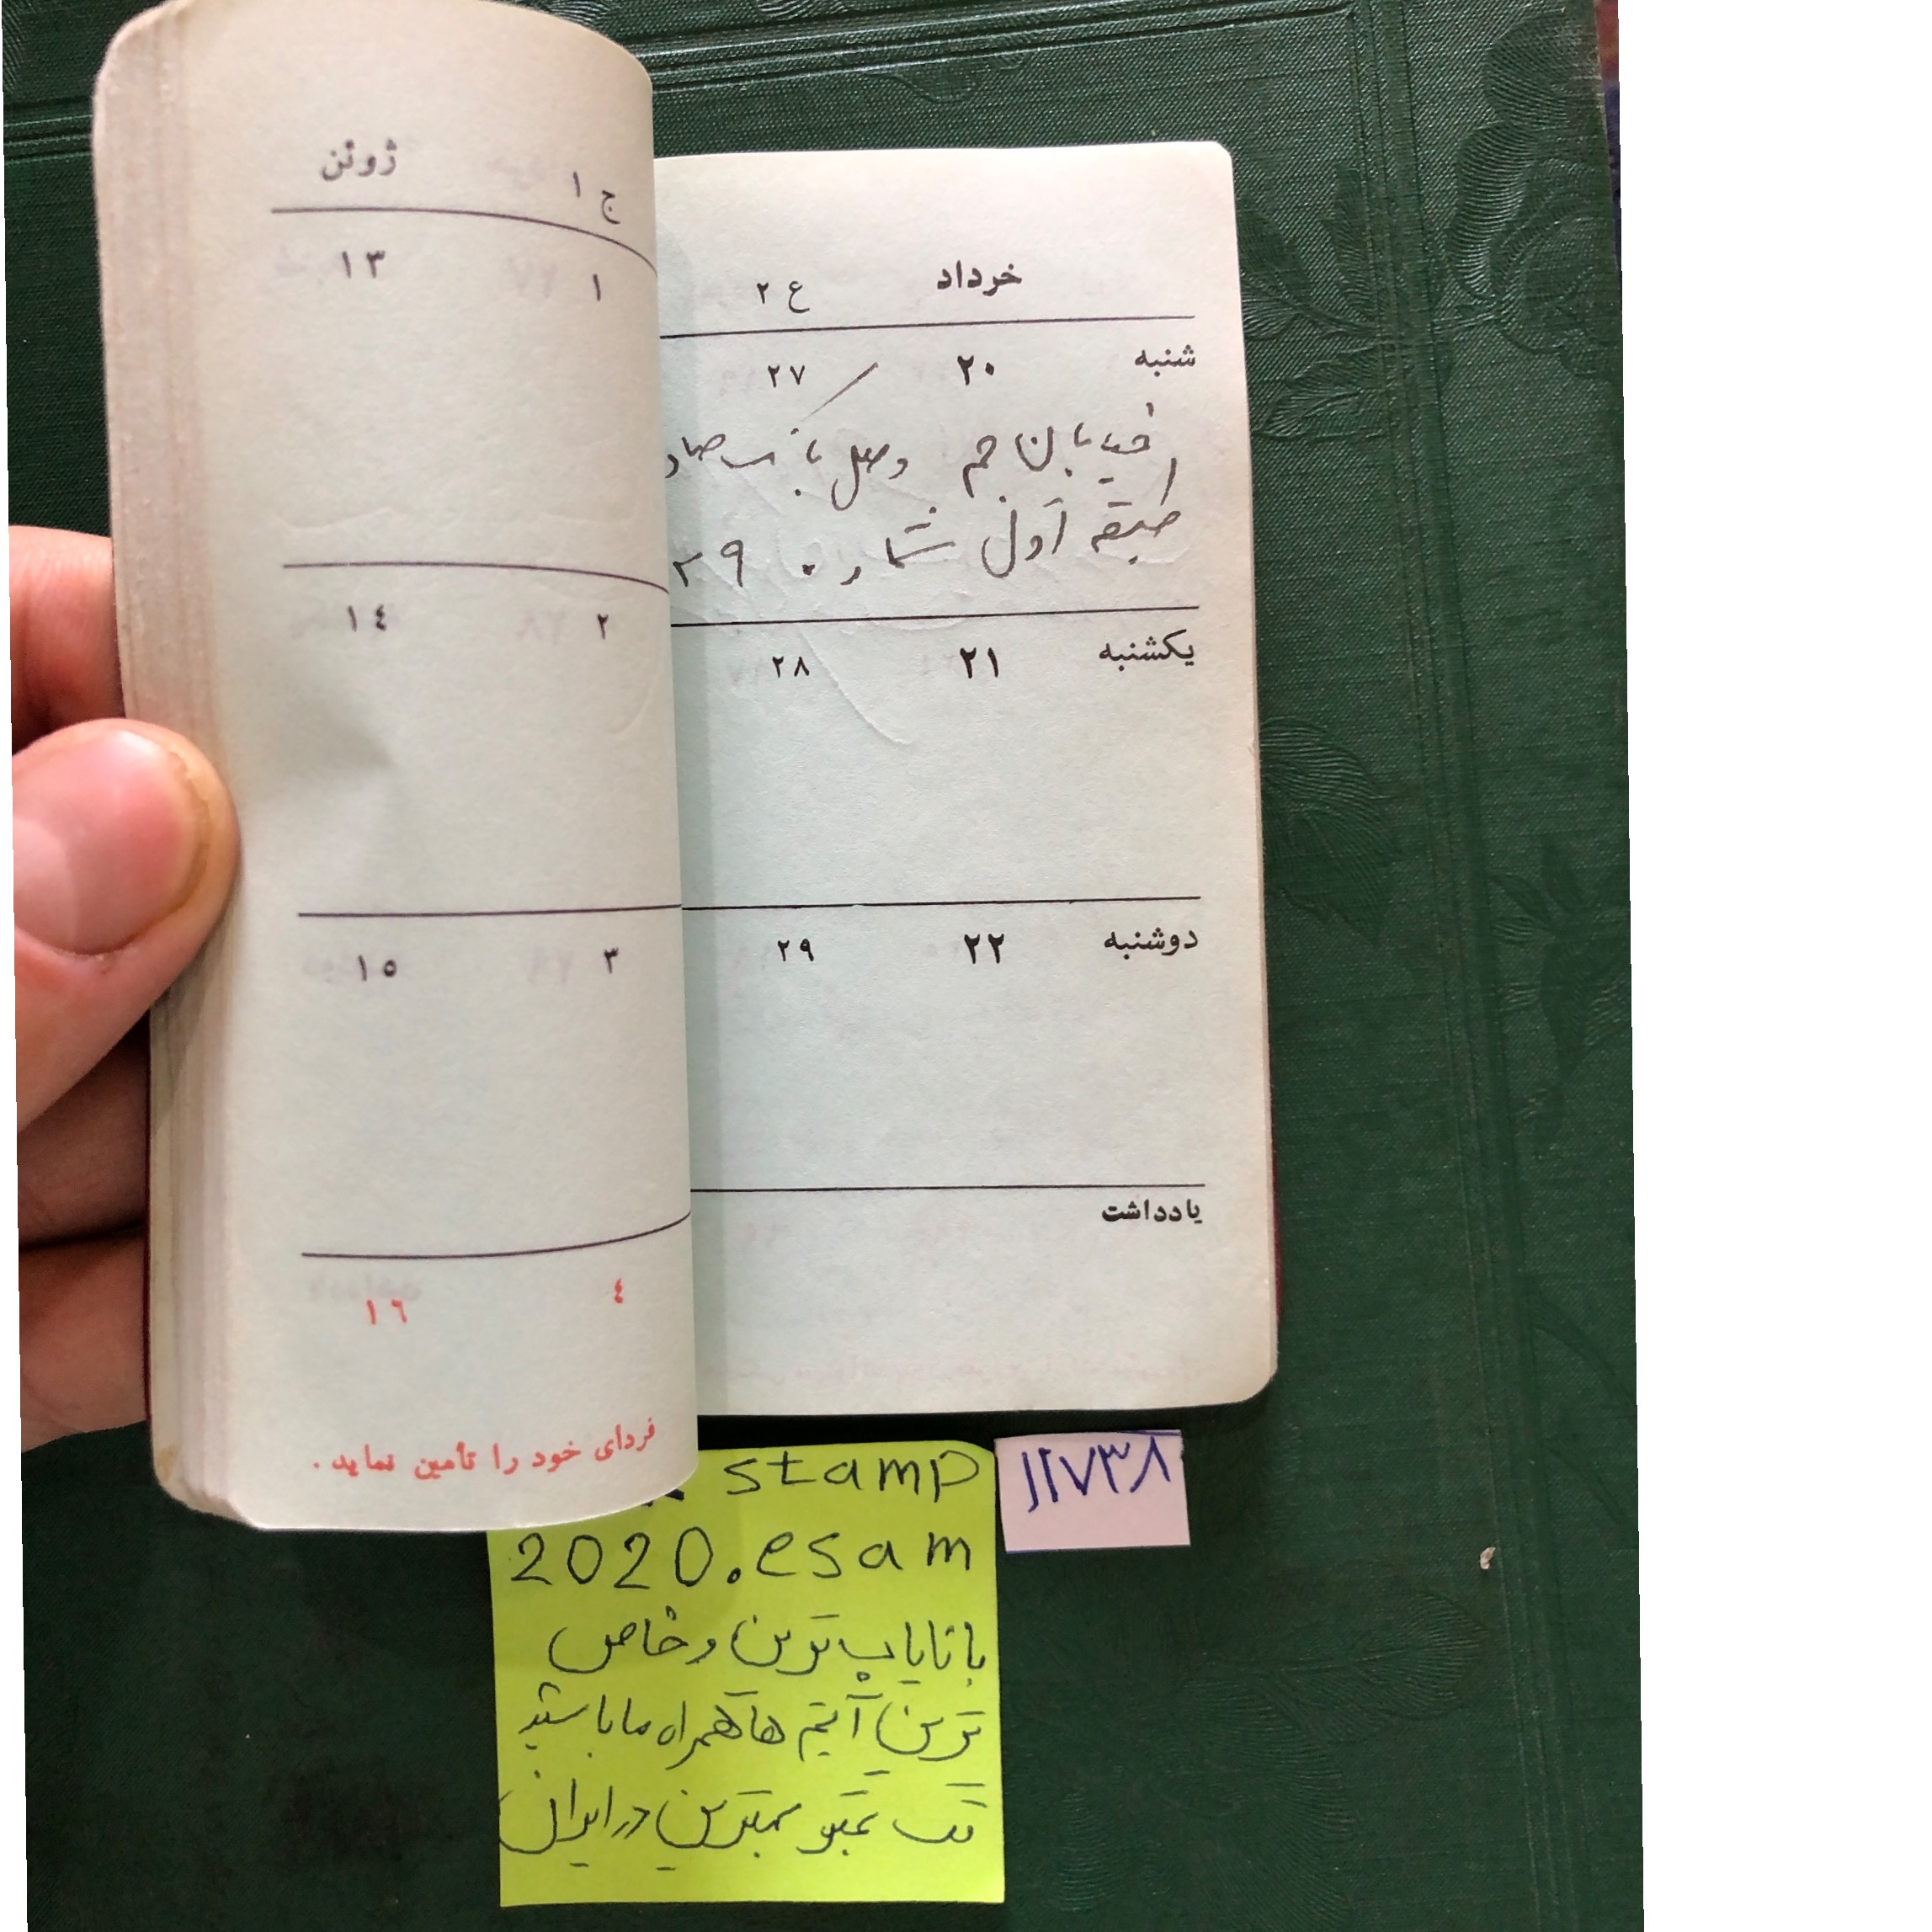 خرداد ع ۲
شنبه ۲۰ ۲۷
خیابان جم وصل بانک صاد
طبقه اول شماره ۳۹
یکشنبه ۲۱ ۲۸
دوشنبه ۲۲ ۲۹
یادداشت
ج ۱ ژوئن
۱ ۱۳
۲ ۱٤
۳ ۱٥
٤ ۱٦
فردای خود را تأمین نماید.
stamp
2020.esam
با نایاب ترین و خاص
ترین آیتم ها همراه ما باشید
تک تمبر بهترین در ایران
۱۲۷۳۸